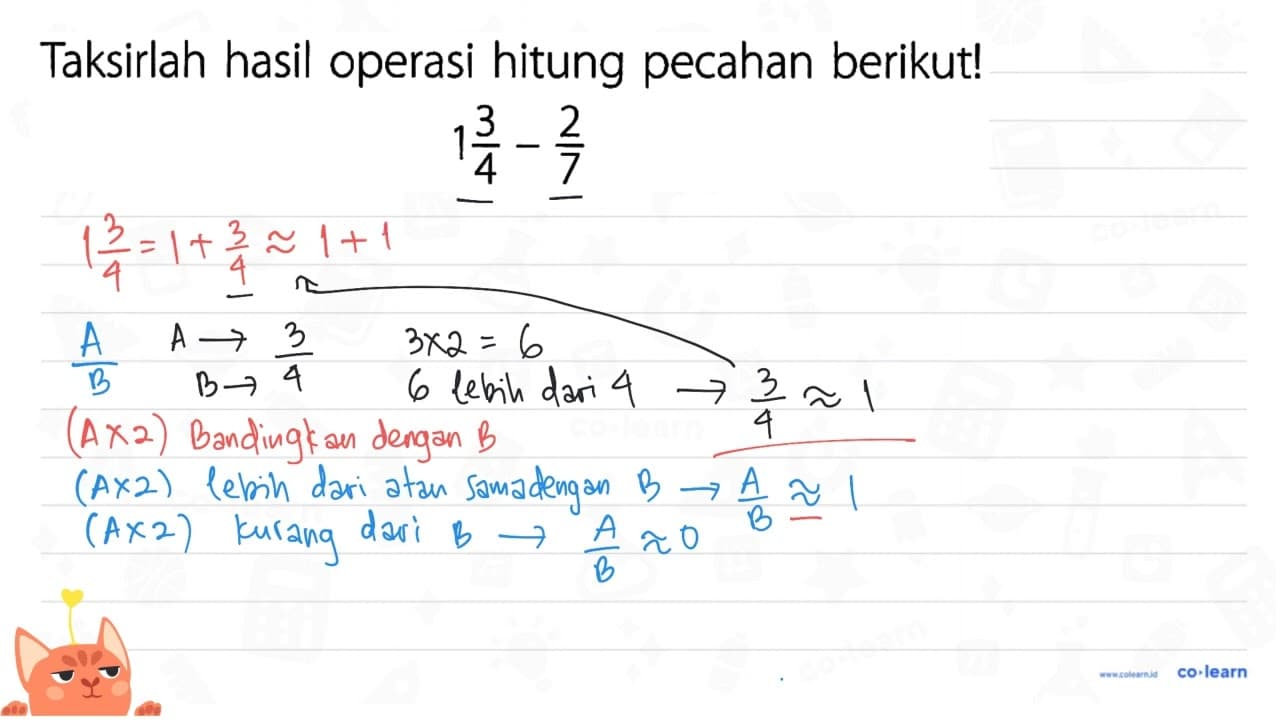 Taksirlah hasil operasi hitung pecahan berikut!
1 3/4 - 2/7
1 3/4 = 1 + 3/4 ≈ 1 + 1
A/B A → 3 B → 4 3x2 = 6
6 lebih dari 4 → 3/4 ≈ 1
(A x 2) Bandingkan dengan B
(A x 2) lebih dari atau samadengan B → A/B ≈ 1
(A x 2) kurang dari B → A/B ≈ 0
www.colearn.id co·learn